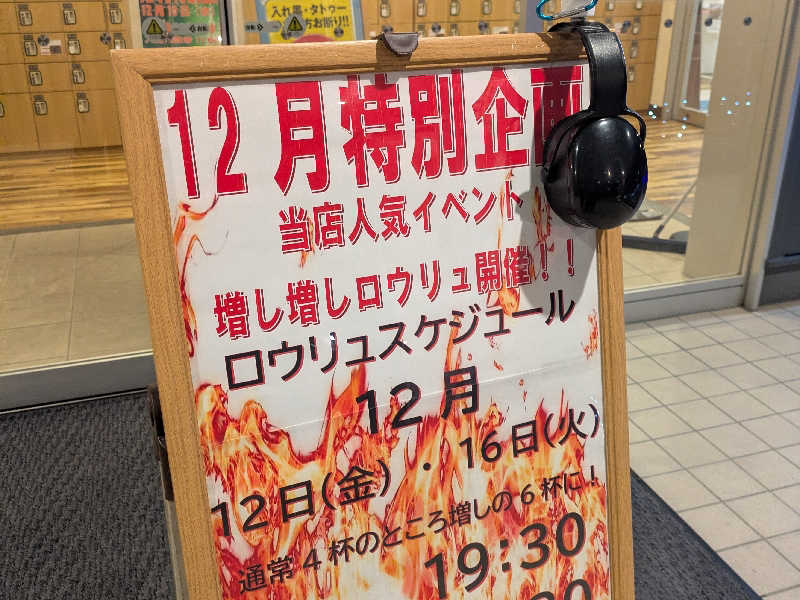 入れ墨・タトゥー
方お断り!!
12月特別企画
当店人気イベント
増し増しロウリュ開催!!
ロウリュスケジュール
12月
12日(金)・16日(火)
通常4杯のところ増しの6杯に!
19:30